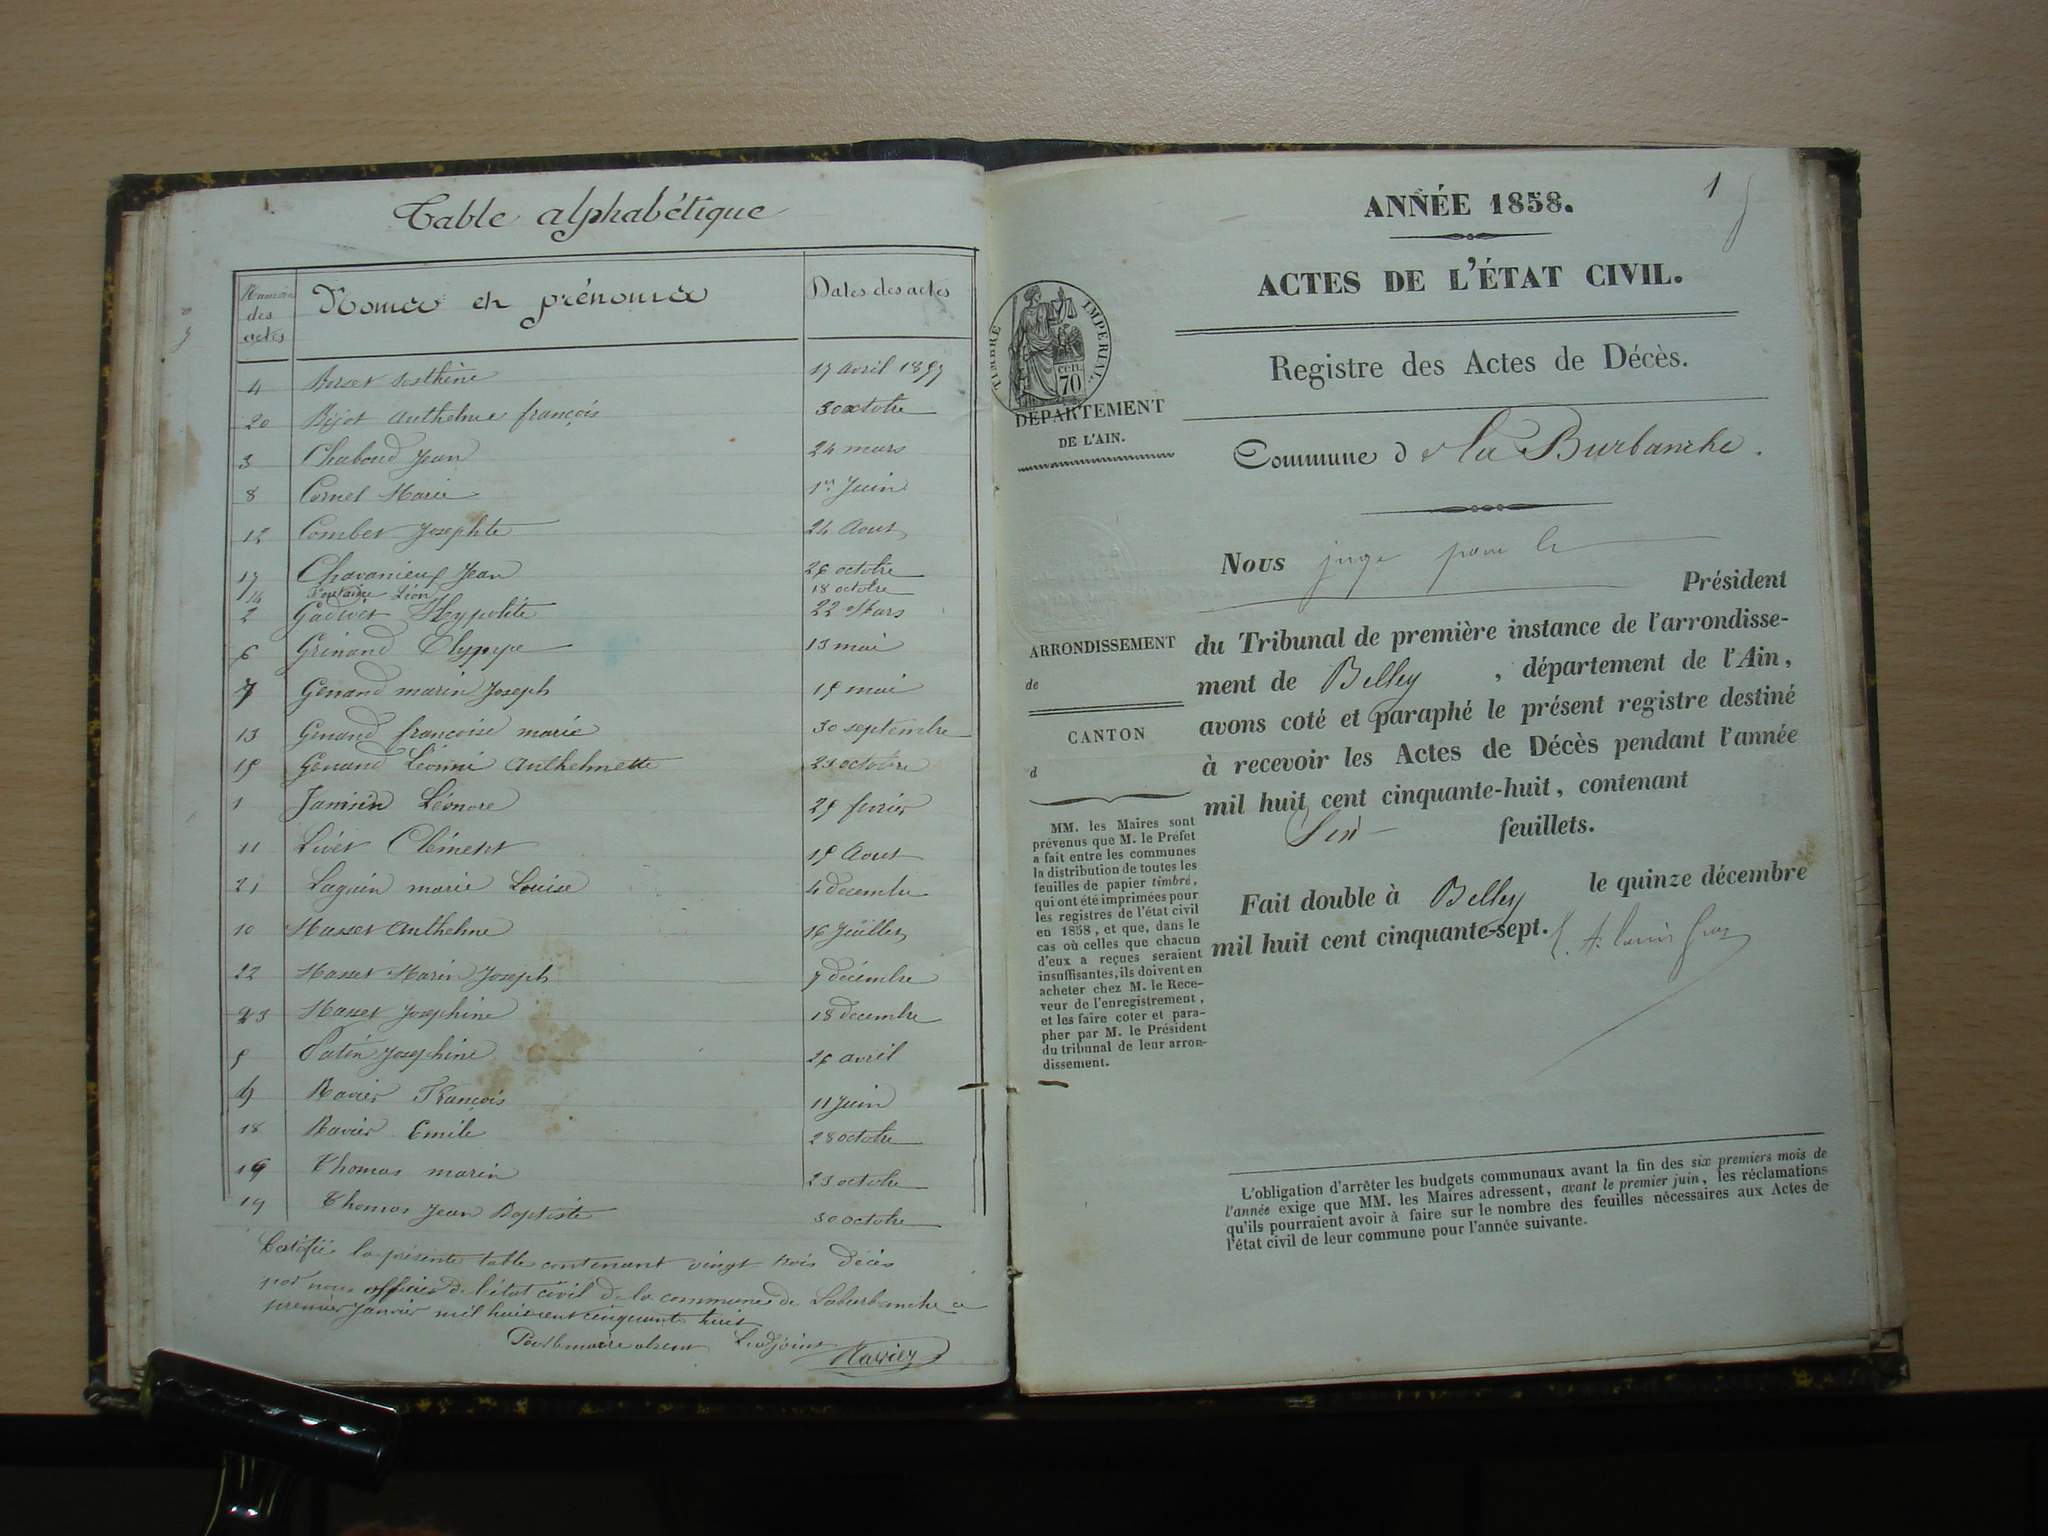 Table alphabétique
Numéros des actes
Noms et prénoms
Dates des actes
4 Berset Sosthène 17 avril 1857
20 Bijot Anthelme françois 30 octobre
3 Chaboud Jean 24 mars
8 Cornet Marie 1er Juin
12 Combet Josephte 24 Aout
17 Chavanieux Jean 26 octobre
14 Fontaine Léon 18 octobre
2 Hypolite 22 Mars
6 Olympe 13 mai
7 Genand marin Joseph 15 mai
13 Genand françoise marie 30 septembre
15 Genand Léonie Anthelmette 21 octobre
1 Janin Léonore 25 fevrier
11 Livet Clément 15 Aout
21 Laguin marie Louise 4 decembre
10 Masset Anthelme 16 Juillet
22 Masset Marin Joseph 7 décembre
23 Masset Josephine 18 decembre
5 Patin Josephine 26 avril
9 Ravier François 11 Juin
18 Ravier Emile 28 octobre
16 Thomas marin 23 octobre
19 Thomas Jean Baptiste 30 octobre
Certifié la présente table contenant vingt trois décès
par nous officier de l'état civil de la commune de Laburbanche ce
premier Janvier mil huit cent cinquante huit
Pour le maire absent L'adjoint
Ravier
1
ANNÉE 1858.
ACTES DE L'ÉTAT CIVIL.
TIMBRE IMPÉRIAL
70 cen.
Registre des Actes de Décès.
DÉPARTEMENT
DE L'AIN.
Commune d e La Burbanche.
Nous juge pour le
Président
ARRONDISSEMENT
de
CANTON
d
du Tribunal de première instance de l'arrondisse-
ment de Belley, département de l'Ain,
avons coté et paraphé le présent registre destiné
à recevoir les Actes de Décès pendant l'année
mil huit cent cinquante-huit, contenant
Six feuillets.
MM. les Maires sont
prévenus que M. le Préfet
a fait entre les communes
la distribution de toutes les
feuilles de papier timbré,
qui ont été imprimées pour
les registres de l'état civil
en 1858, et que, dans le
cas où celles que chacun
d'eux a reçues seraient
insuffisantes, ils doivent en
acheter chez M. le Rece-
veur de l'enregistrement,
et les faire coter et para-
pher par M. le Président
du tribunal de leur arron-
dissement.
Fait double à Belley le quinze décembre
mil huit cent cinquante-sept.
L'obligation d'arrêter les budgets communaux avant la fin des six premiers mois de
l'année exige que MM. les Maires adressent, avant le premier juin, les réclamations
qu'ils pourraient avoir à faire sur le nombre des feuilles nécessaires aux Actes de
l'état civil de leur commune pour l'année suivante.